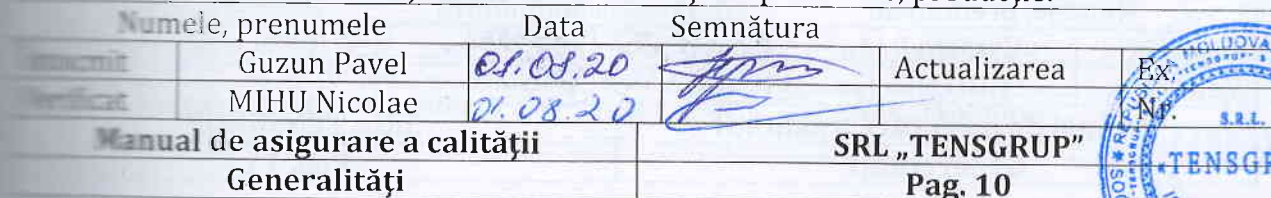 Numele, prenumele Data Semnătura
Guzun Pavel 01.08.20 Actualizarea Ex.
MIHU Nicolae 01.08.20 Nr.
Manual de asigurare a calității SRL „TENSGRUP”
Generalități Pag. 10
S.R.L.